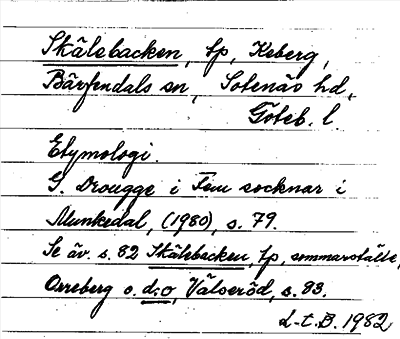 Skälebacken, tp, Keberg,
Bärfendals sn, Sotenäs hd,
Göteb. l.
Etymologi.
G. Drougge i Fem socknar i
Munkedal, (1980), s. 79.
Se äv. s. 82 Skälebacken, tp, sommarställe,
Orreberg o. d:o, Välseröd, s. 83.
L-t. B. 1982